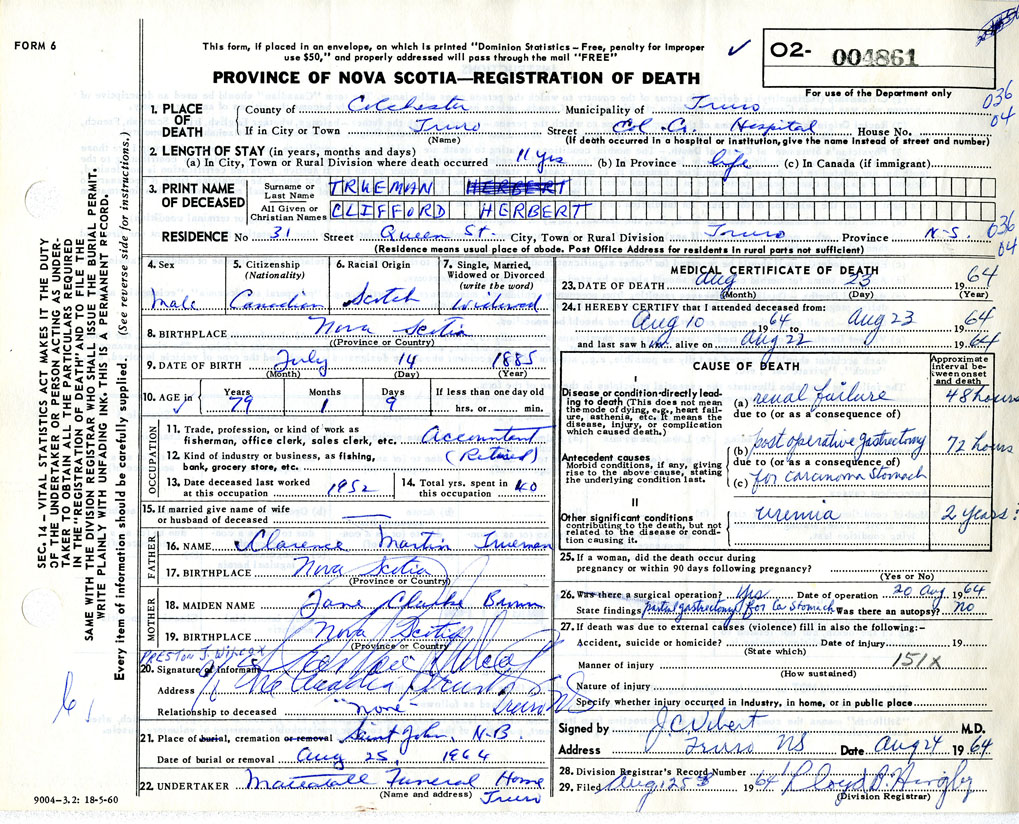 FORM 6
This form, if placed in an envelope, on which is printed "Dominion Statistics – Free, penalty for improper
use $50," and properly addressed will pass through the mail "FREE"
PROVINCE OF NOVA SCOTIA—REGISTRATION OF DEATH
✓
O2- 004861
For use of the Department only
036
04
1. PLACE OF DEATH
County of Colchester Municipality of Truro
If in City or Town Truro Street Col. Co. Hospital House No.
(Name) (If death occurred in a hospital or institution, give the name instead of street and number)
2. LENGTH OF STAY (in years, months and days)
(a) In City, Town or Rural Division where death occurred 11 yrs (b) In Province life (c) In Canada (if immigrant)
3. PRINT NAME OF DECEASED
Surname or Last Name TRUEMAN HERBERT
All Given or Christian Names CLIFFORD HERBERT
RESIDENCE No 31 Street Queen St. City, Town or Rural Division Truro Province N-S.
036
04
(Residence means usual place of abode. Post Office Address for residents in rural parts not sufficient)
4. Sex
Male
5. Citizenship
(Nationality)
Canadian
6. Racial Origin
Scotch
7. Single, Married, Widowed or Divorced
(write the word)
Widowed
8. BIRTHPLACE Nova Scotia
(Province or Country)
9. DATE OF BIRTH July 14 1885
(Month) (Day) (Year)
10. AGE in Years 79 Months 1 Days 9 If less than one day old
hrs. or min.
OCCUPATION
11. Trade, profession, or kind of work as
fisherman, office clerk, sales clerk, etc. Accountant
12. Kind of industry or business, as fishing,
bank, grocery store, etc. (Retired)
13. Date deceased last worked
at this occupation 1952
14. Total yrs. spent in
this occupation 40
15. If married give name of wife
or husband of deceased —
FATHER
16. NAME Clarence Martin Trueman
17. BIRTHPLACE Nova Scotia
(Province or Country)
MOTHER
18. MAIDEN NAME Jane Clarke Brown
19. BIRTHPLACE Nova Scotia
(Province or Country)
PRESTON J. WILCOX
20. Signature of Informant
Address Acadia Trust Truro NS
Relationship to deceased "None"
21. Place of burial, cremation or removal Saint John, N-B.
Date of burial or removal Aug 25, 1964
22. UNDERTAKER Mattatall Funeral Home
(Name and address) Truro
MEDICAL CERTIFICATE OF DEATH
23. DATE OF DEATH Aug 23 1964
(Month) (Day) (Year)
24. I HEREBY CERTIFY that I attended deceased from:
Aug 10 1964 to Aug 23 1964
and last saw him alive on Aug 22 1964
CAUSE OF DEATH
Approximate interval between onset and death
I
Disease or condition directly leading to death (This does not mean the mode of dying, e.g., heart failure, asthenia, etc. It means the disease, injury, or complication which caused death.)
(a) renal failure 48 hours
due to (or as a consequence of)
Antecedent causes
Morbid conditions, if any, giving rise to the above cause, stating the underlying condition last.
(b) post operative gastrectomy 72 hours
due to (or as a consequence of)
(c) for carcinoma stomach
II
Other significant conditions
contributing to the death, but not related to the disease or condition causing it.
Uremia 2 years?
25. If a woman, did the death occur during
pregnancy or within 90 days following pregnancy?
(Yes or No)
26. Was there a surgical operation? Yes Date of operation 20 Aug 1964
State findings partial gastrectomy for Ca Stomach Was there an autopsy? No
27. If death was due to external causes (violence) fill in also the following:–
Accident, suicide or homicide? Date of injury 19
(State which)
Manner of injury 151X
(How sustained)
Nature of injury
Specify whether injury occurred in industry, in home, or in public place
Signed by J.C. Vibert M.D.
Address Truro NS Date Aug 24 1964
28. Division Registrar's Record Number
29. Filed Aug 25 1964
(Division Registrar)
SEC. 14 – VITAL STATISTICS ACT MAKES IT THE DUTY
OF THE UNDERTAKER OR PERSON ACTING AS UNDER-
TAKER TO OBTAIN ALL THE PARTICULARS REQUIRED
IN THE "REGISTRATION OF DEATH" AND TO FILE THE
SAME WITH THE DIVISION REGISTRAR WHO SHALL ISSUE THE BURIAL PERMIT.
WRITE PLAINLY WITH UNFADING INK. THIS IS A PERMANENT RECORD.
Every item of information should be carefully supplied. (See reverse side for instructions.)
9004-3.2: 18-5-60